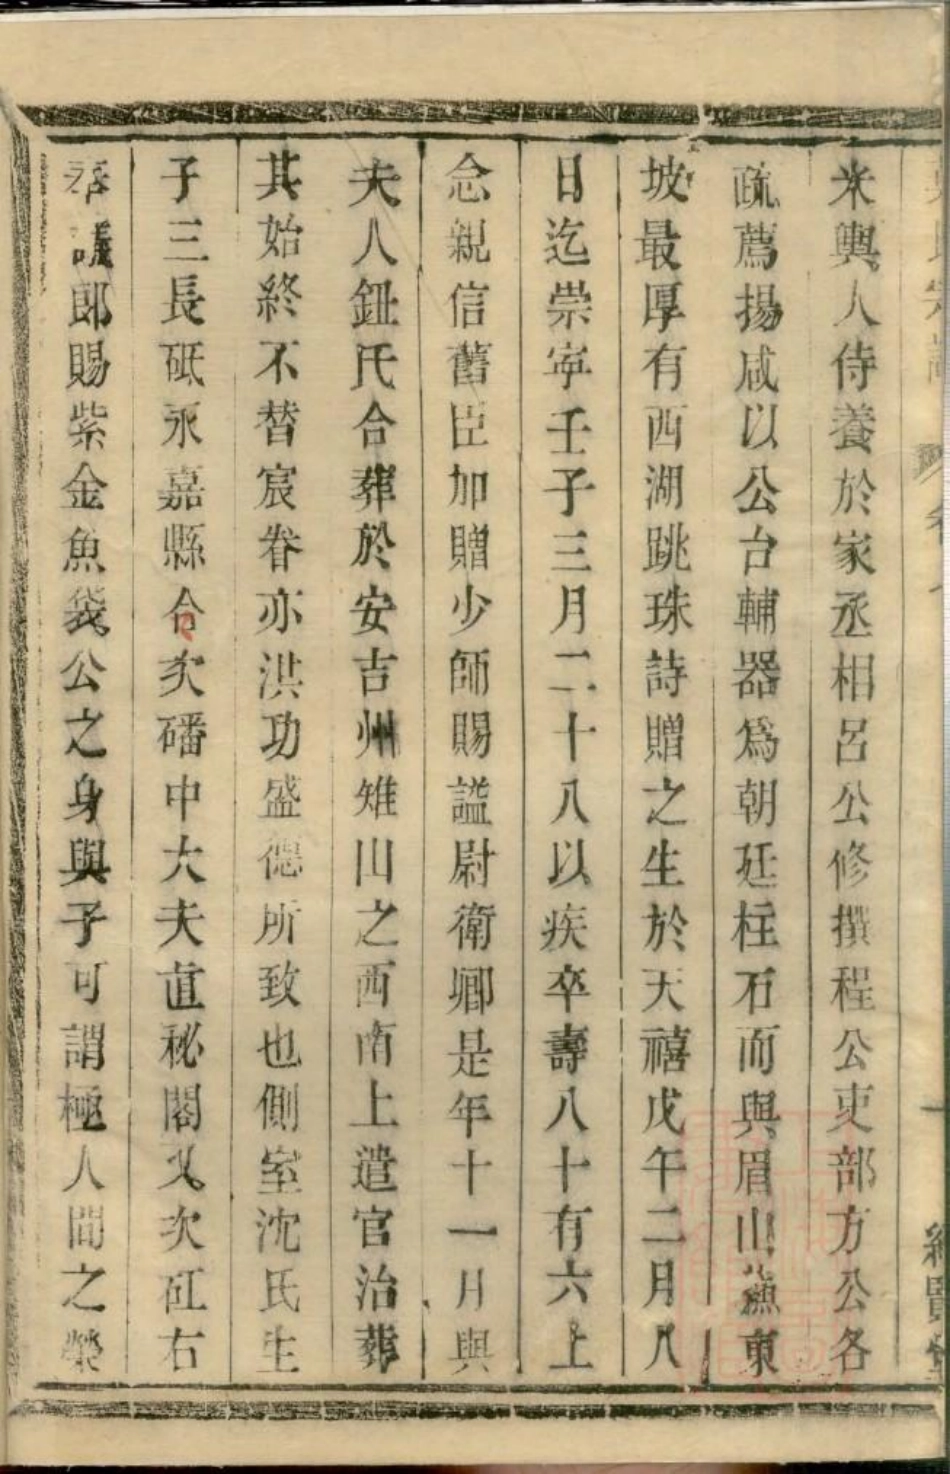 米與人侍養於家丞相呂公修撰程公吏部方公各
疏薦揚咸以公台輔器為朝廷柱石而與眉山蘓東
坡最厚有西湖跳珠詩贈之生於天禧戊午二月八
日迄崇寧壬子三月二十八以疾卒壽八十有六上
念親信舊臣加贈少師賜謚尉衛卿是年十一月與
夫人鈕氏合葬於安吉州雉山之西南上遣官治葬
其始終不替宸眷亦洪功盛德所致也側室沈氏生
子三長砥永嘉縣令次磻中大夫直秘閣又次矼右
議郎賜紫金魚袋公之身與子可謂極人間之榮